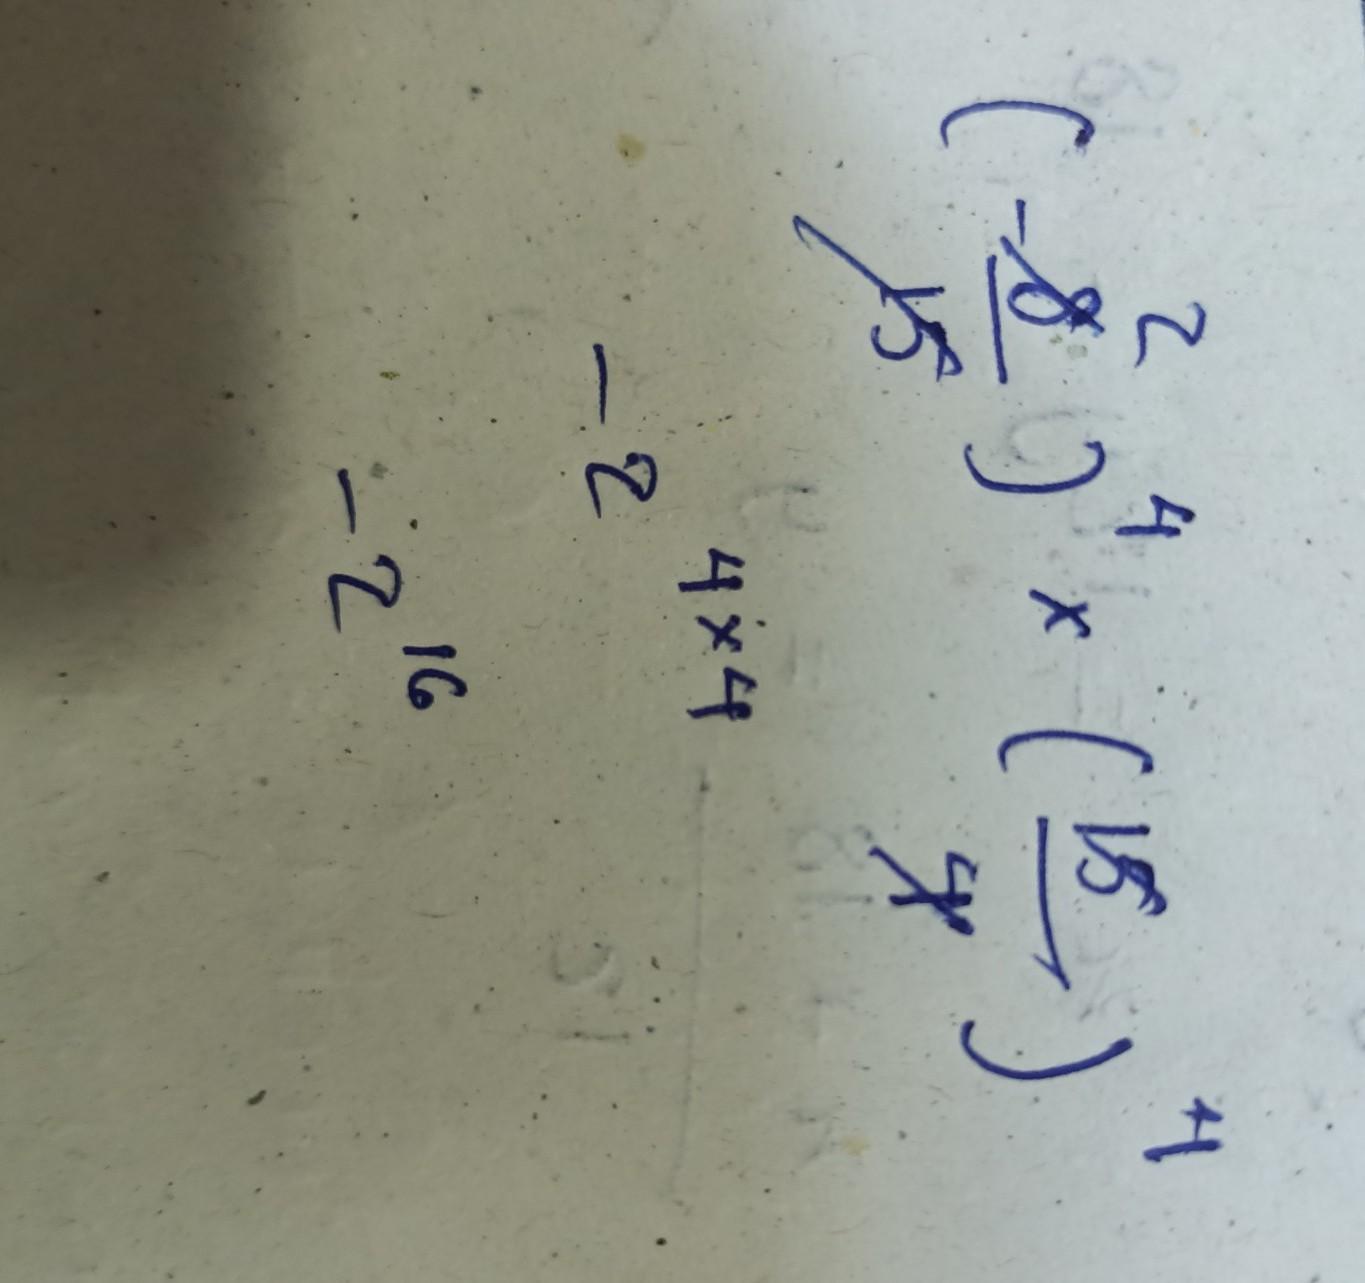 2
(-8/15)⁴ × (15/4)⁴
-2⁴ˣ⁴
-2¹⁶